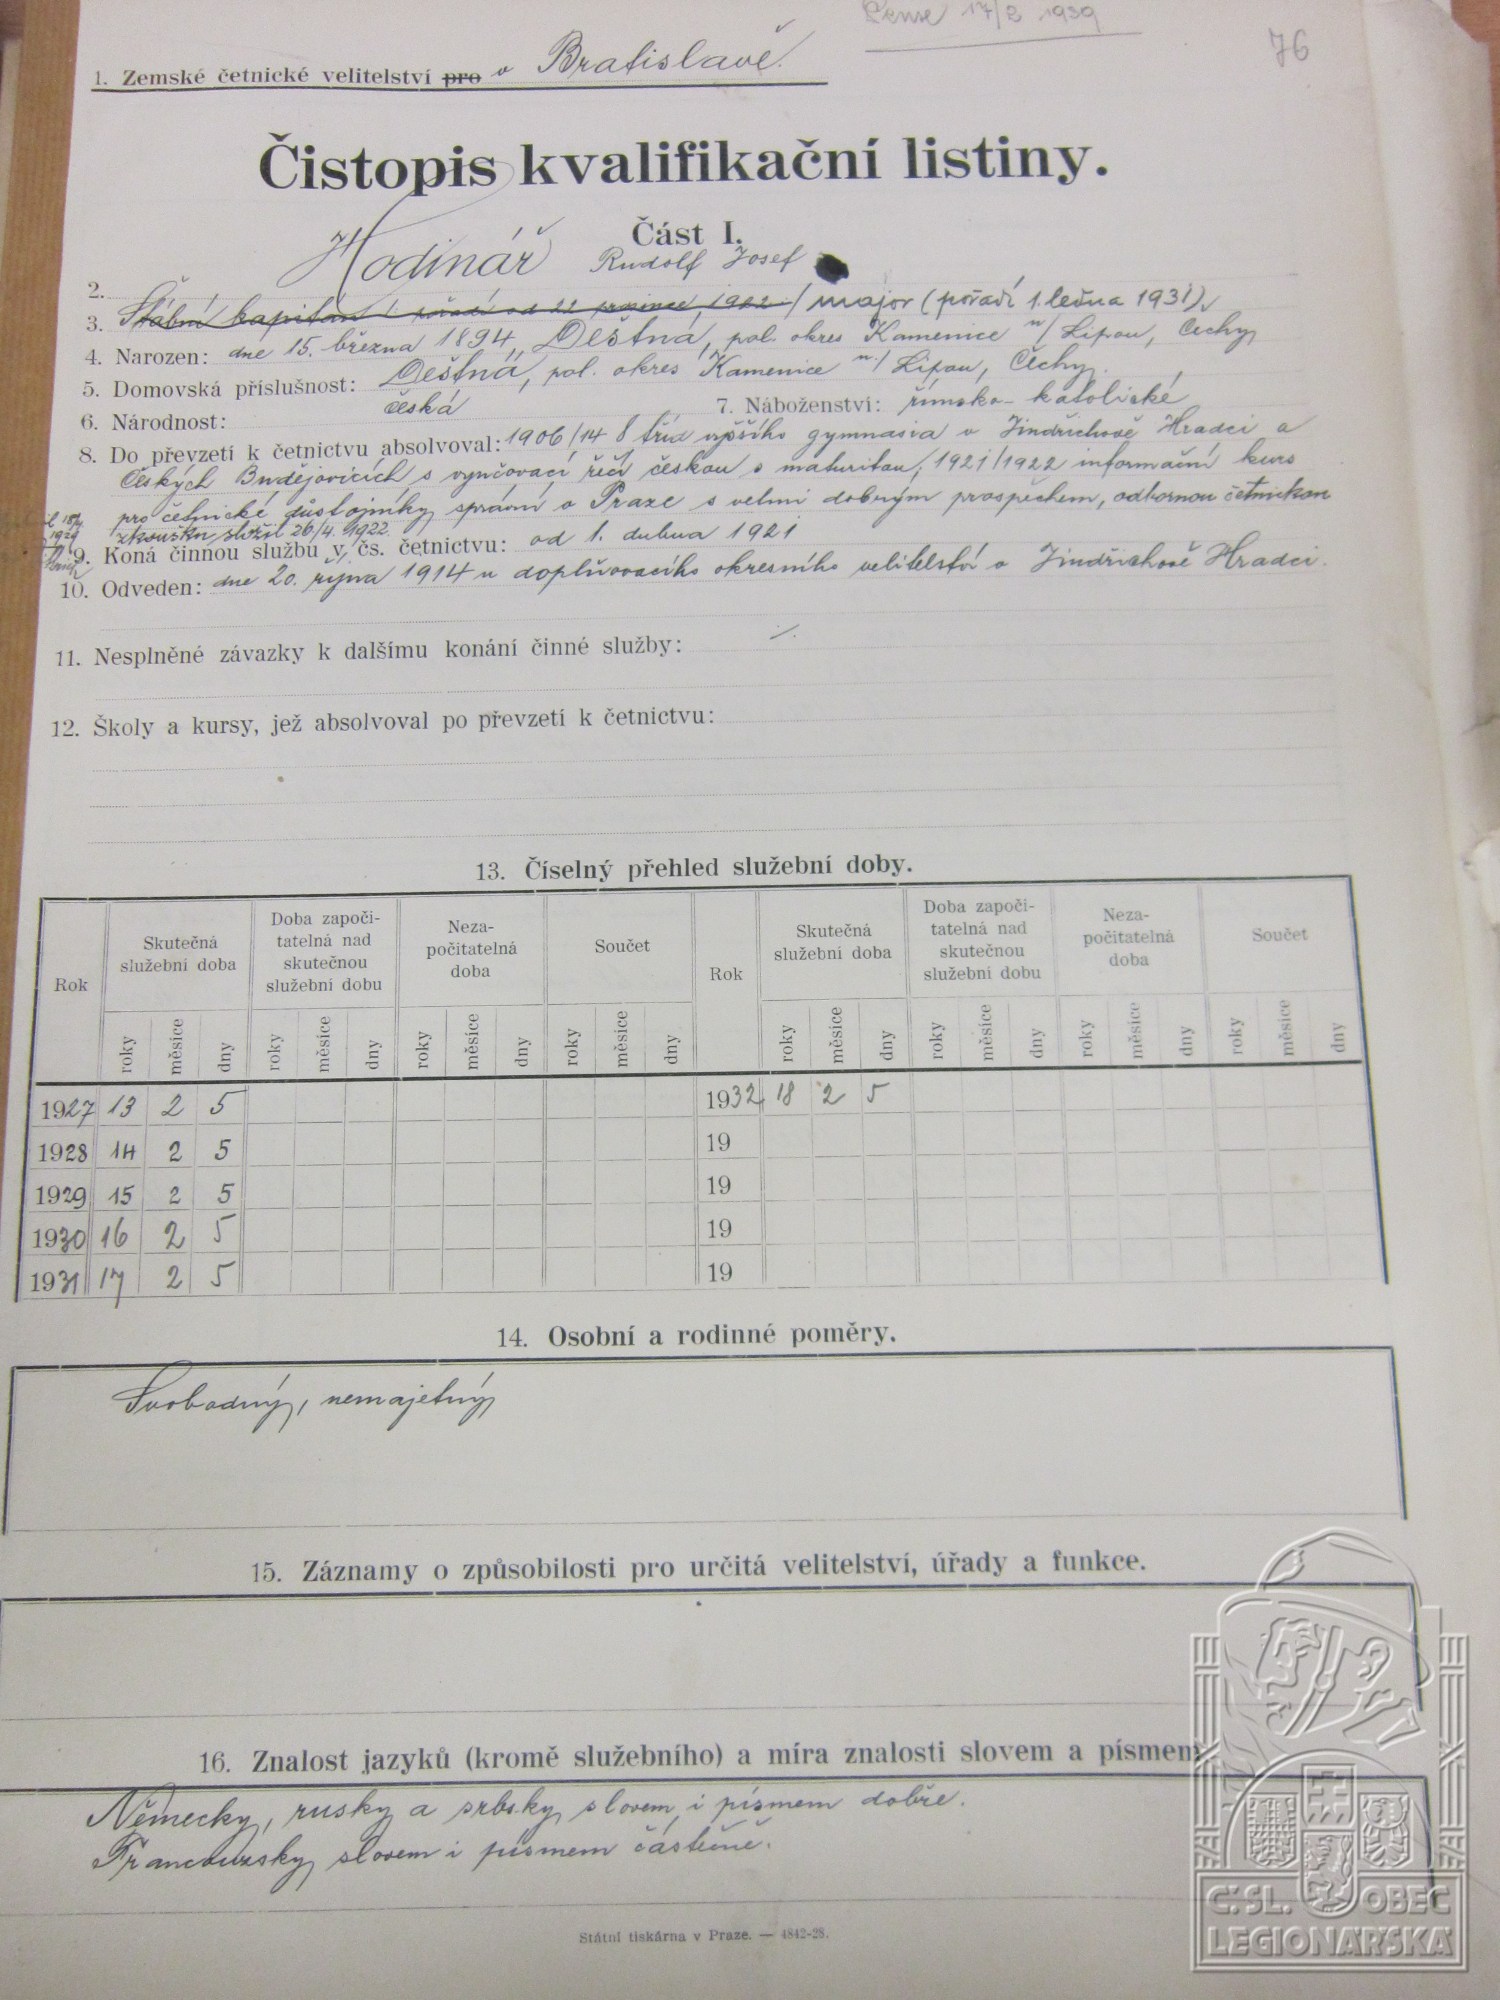 Pense 17/2 1939
76
1. Zemské četnické velitelství pro v Bratislavě.
Čistopis kvalifikační listiny.
Část I.
2. Hodinář Rudolf Josef
3. Štábní kapitán / pořadí od 22 prosince 1922 / major (pořadí 1. ledna 1931)
4. Narozen: dne 15. března 1894, Deštná, pol. okres Kamenice n/Lipou, Čechy
5. Domovská příslušnost: Deštná, pol. okres Kamenice n./Lipou, Čechy.
6. Národnost: česká 7. Náboženství: římsko-katolické
8. Do převzetí k četnictvu absolvoval: 1906/14 8 tříd vyššího gymnasia v Jindřichově Hradci a
Českých Budějovicích s vyučovací řečí českou s maturitou; 1921/1922 informační kurs
pro četnické důstojníky správní v Praze s velmi dobrým prospěchem, odbornou četnickou
zkoušku složil 26/4. 1922.
1929
9. Koná činnou službu v čs. četnictvu: od 1. dubna 1921
10. Odveden: dne 20. října 1914 u doplňovacího okresního velitelství v Jindřichově Hradci.
11. Nesplněné závazky k dalšímu konání činné služby: ./.
12. Školy a kursy, jež absolvoval po převzetí k četnictvu:
13. Číselný přehled služební doby.
Rok Skutečná služební doba Doba započi-tatelná nad skutečnou služební dobu Neza-počitatelná doba Součet Rok Skutečná služební doba Doba započi-tatelná nad skutečnou služební dobu Neza-počitatelná doba Součet
roky měsíce dny roky měsíce dny roky měsíce dny roky měsíce dny roky měsíce dny roky měsíce dny roky měsíce dny roky měsíce dny
1927 13 2 5 1932 18 2 5
1928 14 2 5 19
1929 15 2 5 19
1930 16 2 5 19
1931 17 2 5 19
14. Osobní a rodinné poměry.
Svobodný, nemajetný
15. Záznamy o způsobilosti pro určitá velitelství, úřady a funkce.
16. Znalost jazyků (kromě služebního) a míra znalosti slovem a písmem
Německy, rusky a srbsky slovem i písmem dobře.
Francouzsky slovem i písmem částečně.
Státní tiskárna v Praze. — 4842-28.
Č.SL. OBEC
LEGIONÁŘSKÁ